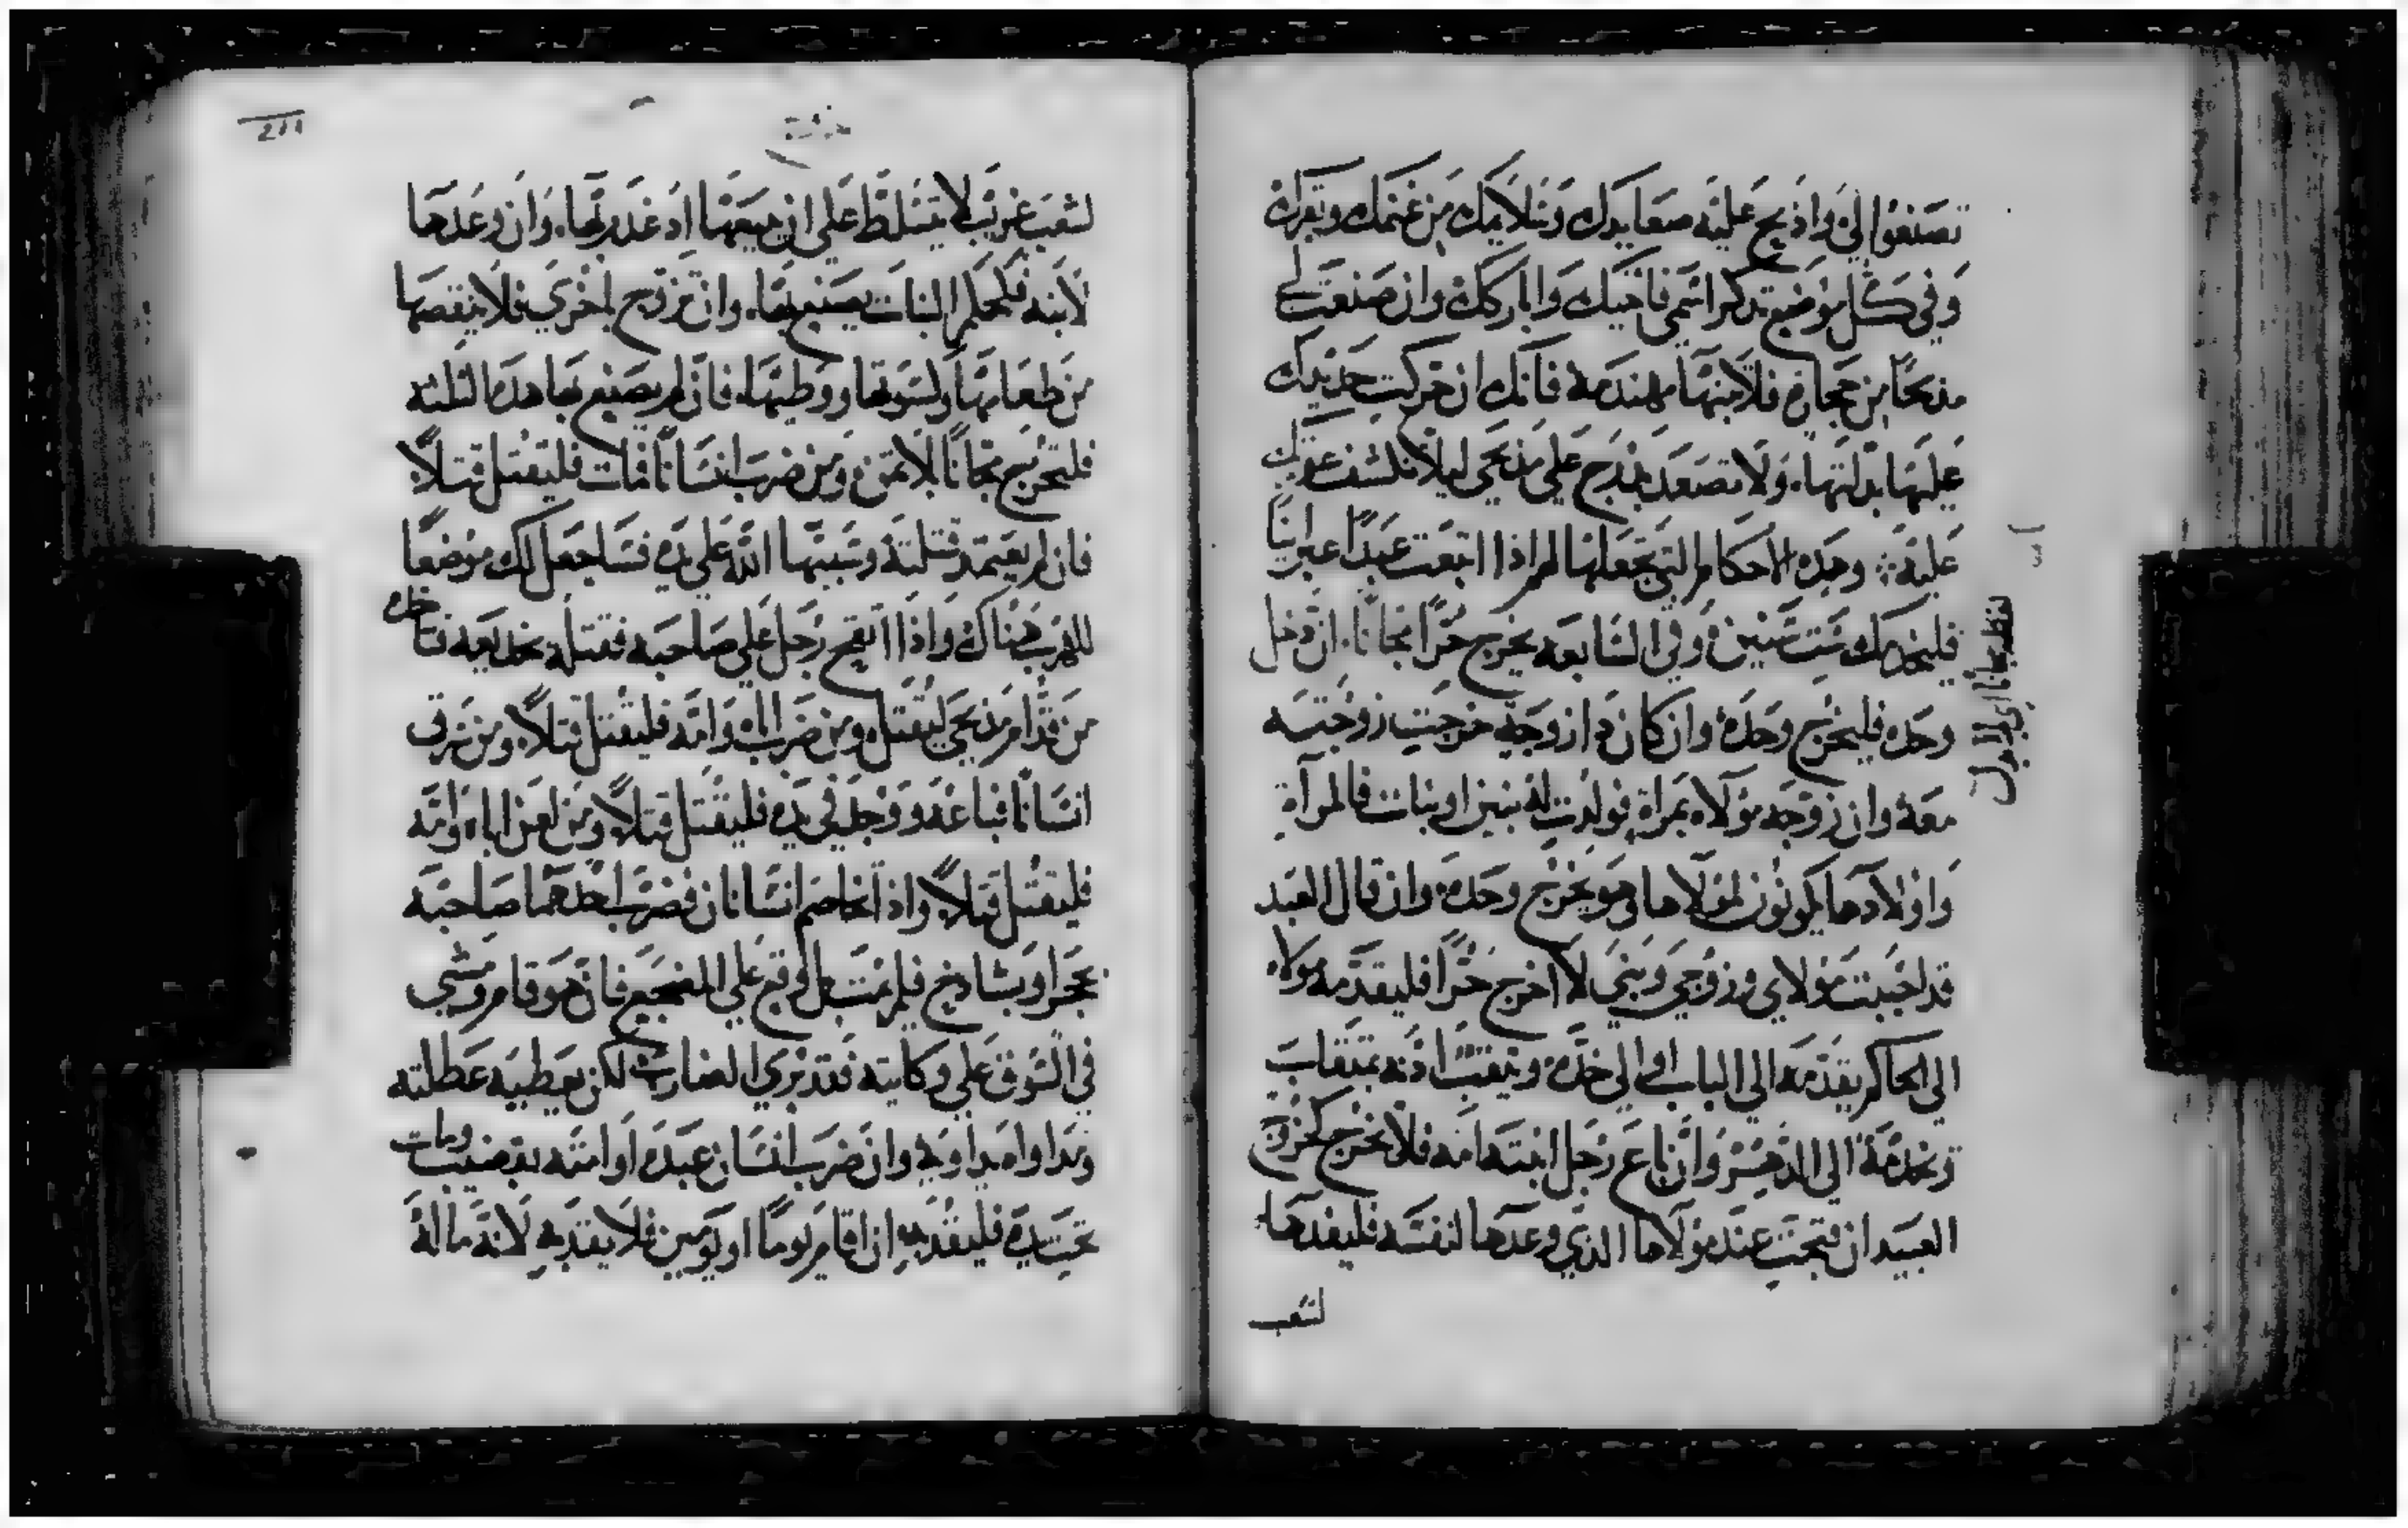 تصنعوا لي واذبح عليه صعايدك وسلايمك من غنمك وبقرك
وفي كل موضع تذكر اسمي فاجيك واباركك وان صنعت لي
مذبحًا من حجارة فلا تبنها مهندمة فانك ان حركت حديدك
عليها بذلتها. ولا تصعد بدرج على مذبحي ليلا تكشف عورتك
عليه ∴ وهذه الاحكام التي تجعلها لهم اذا ابتعت عبدًا عبرانيًا
فليخدمك ست سنين وفي السابعه يخرج حرًا مجانًا. ان دخل
وحده فليخرج وحده وان كان ذا زوجه خرجت زوجته
معه وان زوجه مولاه بمراة فولدت له بنين او بنات فالمرآة
واولادها يكونون لمولاها وهو يخرج وحده وان قال العبد
قد احببت مولاي وزوجي وبني لا اخرج حرًا فليقدمه مولاه
الى الحاكم يقدمه الى الباب او الى خده ويثقب اذنه بمثقاب
ويخدمه الى الدهر وان باع رجل ابنته امه فلا تخرج كخروج
العبيد ان قبحت عند مولاها الذي وعدها لنفسه فليفدها
لشعب
لشعب غريب لا يتسلط على ان يبيعها اذ غدر بها. وان وعدها
لابنه فلحكم البنات يصنع بها. وان تزوج باخري فلا ينقصها
من طعامها وكسوتها ووطيها. فان لم يصنع بها هذه الثلثه
فلتخرج مجانًا بلا ثمن ومن ضرب انسانًا فمات فليقتل قتلاً
فان لم يعتمد قتلته وسببها الله على يده فساجعل لك موضعًا
للهرب هناك واذا اتقح رجل على صاحبه فقتله بخديعه فخذه
من قدام مذبحي ليقتل ومن ضرب اباه وامه فليقتل قتلاً ومن سرق
انسانًا فباعه ووجد في يده فليقتل قتلاً ومن لعن اباه وامه
فليقتل قتلاً واذا تخاصم انسانان فضرب احدهما صاحبه
بحجر او بشادخ فلم يمت بل وقع على المضجع فان هو قام ومشى
في السوق على وكايته فقد بري الضارب لكن يعطيه عطلته
ومداواه يداويه وان ضرب انسان عبده او امته بقضيب ومات
تحت يده فليقد به ان اقام يومًا او يومين فلا يقد به لانه ماله